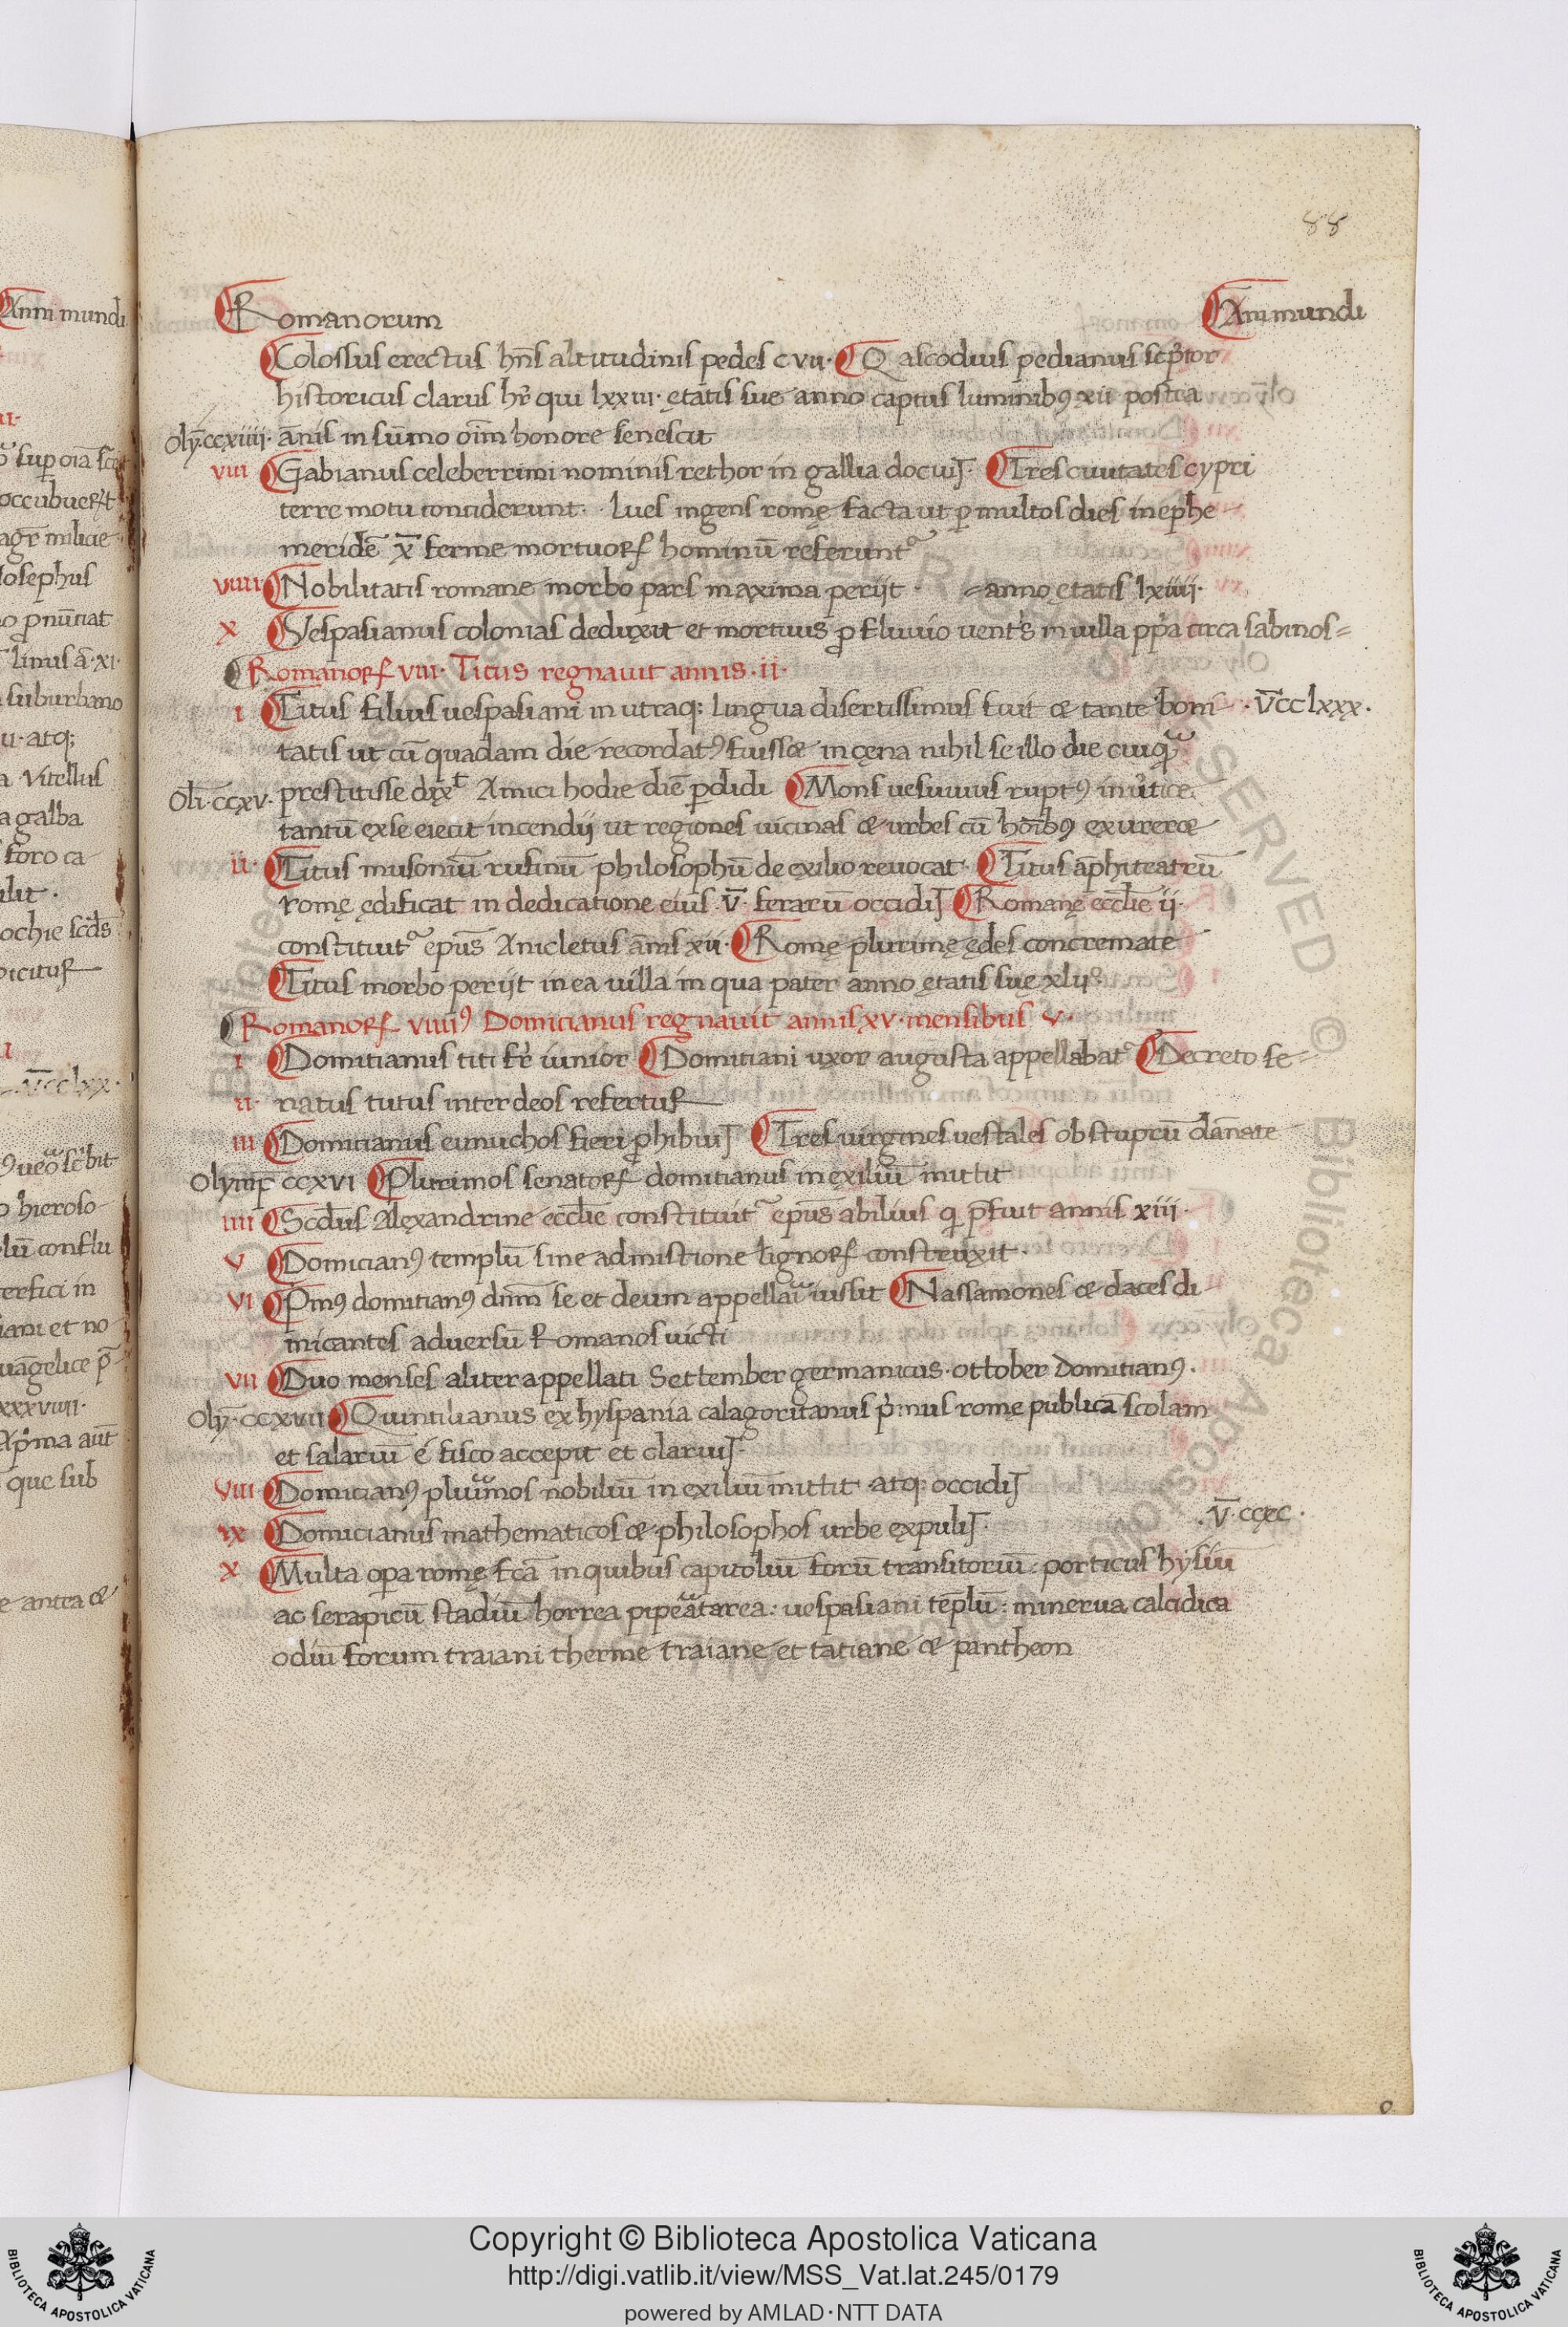 88
Romanorum Anni mundi
Colossus erectus hn̄s altitudinis pedes c vii· Q ascodius pedianus scp̄tor
historicus clarus hr̄ qui lxxiii· ętatis sue anno captus luminibꝰ xii postea
Olȳ·ccxiiii· ānis in sūmo oīm honore senescit
viii Gabianus celeberrimi nominis rethor in gallia docuit· Tres ciuitates cypri
terre motu conciderunt· lues ingens romę facta ut p multos dies in ephe
meridē x̄ ferme mortuoꝝ hominū referunt᷑
viiii Nobilitatis romane morbo pars maxima perijt · = anno ętatis lxiiii·
x Vespasianus colonias deduxit et mortuus p fluuio uentˢ in uilla pp̄a circa sabinos =
Romanoꝝ viii· Titus regnauit annis ·ii·
i Titus filius uespasiani in utraq: lingua disertissimus fuit & tante boni ·v̄cc lxxx·
tatis ut cū quadam die recordatꝰ fuiss& in cęna nihil se illo die cuiq̄
Olī·ccxv· prestitisse dix̄t Amici hodie diē pdidi Mons uesuuius ruptꝰ in uˀtice
tantū exse eiecit incendij ut regiones uicinas & urbes cū hoībꝰ exurer&
ii· Titus musoniū rufinū philosophū de exilio reuocat· Titus āphiteatrū
romę ędificat in dedicatione eius ·v̄· ferarū occidit Romanę eccl̄ie ii·
constituit᷑ epūs Anicletus ānis xii· Romę plurimę ędes concremate
Titus morbo perijt in ea uilla in qua pater anno ętatis suę xlii·
Romanoꝝ viiiiꝰ Domicianus regnauit annis xv· mensibus v·
i Domitianus titi fr̄ iunior Domitiani uxor augusta appellabat᷑ Decreto se-
ii· natus titus inter deos refertur
iii Domitianus eunuchos fieri phibuit Tres uirgines uestales ob stuprū dānate
Olymp̄ ccxvi Plurimos senatoꝝ domitianus in exiliū mittit
iiii Scd̄us Alexandrine eccl̄ie constituit᷑ epūs abilius q p̄fuit annis xiii·
v Domicianꝰ templū sine admistione lignoꝝ construxit·
vi P̄mꝰ domitianꝰ dn̄m se et deum appellaī iussit Nassamones & daces di
micantes aduersū Romanos uicti
vii Duo menses aliter appellati Settember germanicus· ottober Domitianꝰ·
Olȳ·ccxvii Quintilianus ex hyspania calagoritanus p̄mus romę publicā scolam
et salariū é fisco accepit et claruit
viii Domicianꝰ plurimos nobiliū in exiliū mittit atq: occidit
ix Domicianus mathematicos & philosophos urbe expulit· ·v̄·ccxc·
x Multa opa romę fc̄a in quibus capitoliū forū transitoriū: porticus hysiū
ac serapicū stadiū horrea pipeatarea: uespasiani tēplū: minerua calcidica
odiū forum traiani therme traiane et tatiane & pantheon
Copyright © Biblioteca Apostolica Vaticana
http://digi.vatlib.it/view/MSS_Vat.lat.245/0179
powered by AMLAD·NTT DATA